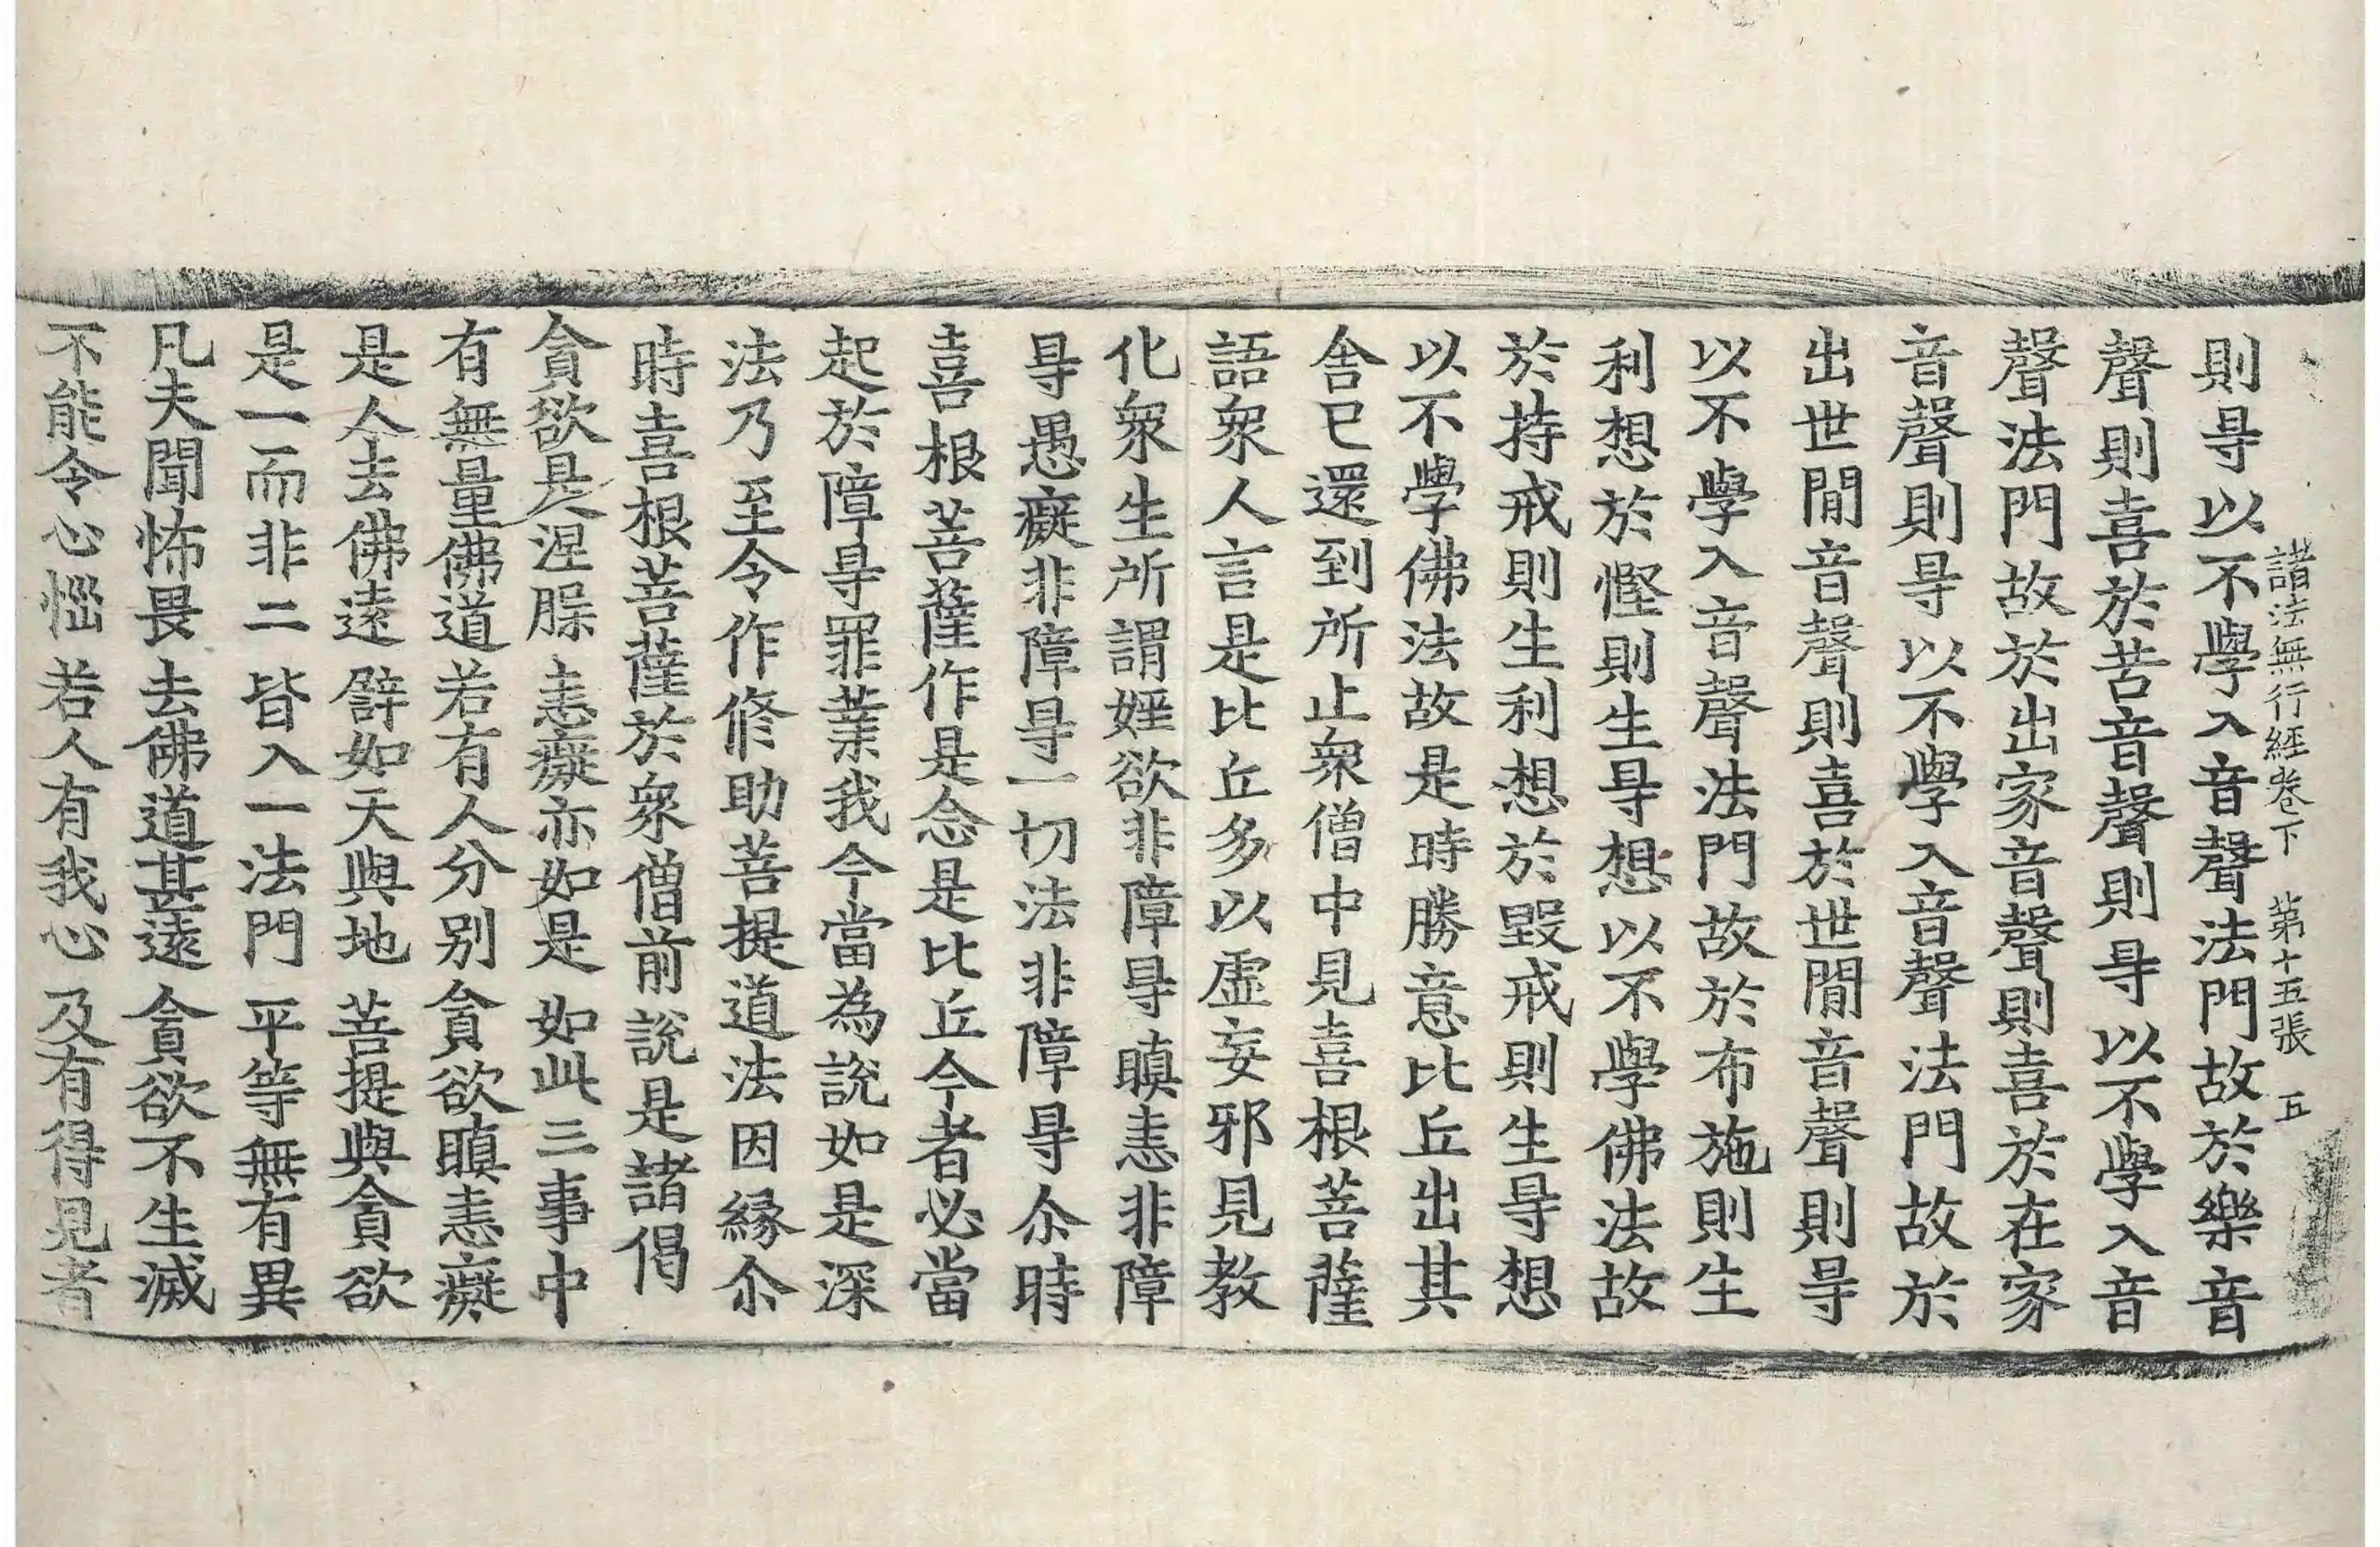 諸法無行經卷下　第十五張　五
則㝵以不學入音聲法門故於樂音
聲則喜於苦音聲則㝵以不學入音
聲法門故於出家音聲則喜於在家
音聲則㝵以不學入音聲法門故於
出世閒音聲則喜於世閒音聲則㝵
以不學入音聲法門故於布施則生
利想於慳則生㝵想以不學佛法故
於持戒則生利想於毀戒則生㝵想
以不學佛法故是時勝意比丘出其
舍已還到所止衆僧中見喜根菩薩
語衆人言是比丘多以虛妄邪見教
化衆生所謂婬欲非障㝵瞋恚非障
㝵愚癡非障㝵一切法非障㝵尒時
喜根菩薩作是念是比丘今者必當
起於障㝵罪業我今當為說如是深
法乃至令作修助菩提道法因緣尒
時喜根菩薩於衆僧前說是諸偈
貪欲是涅槃　恚癡亦如是　如此三事中
有無量佛道　若有人分別　貪欲瞋恚癡
是人去佛遠　譬如天與地　菩提與貪欲
是一而非二　皆入一法門　平等無有異
凡夫聞怖畏　去佛道甚遠　貪欲不生滅
不能令心惱　若人有我心　及有得見者